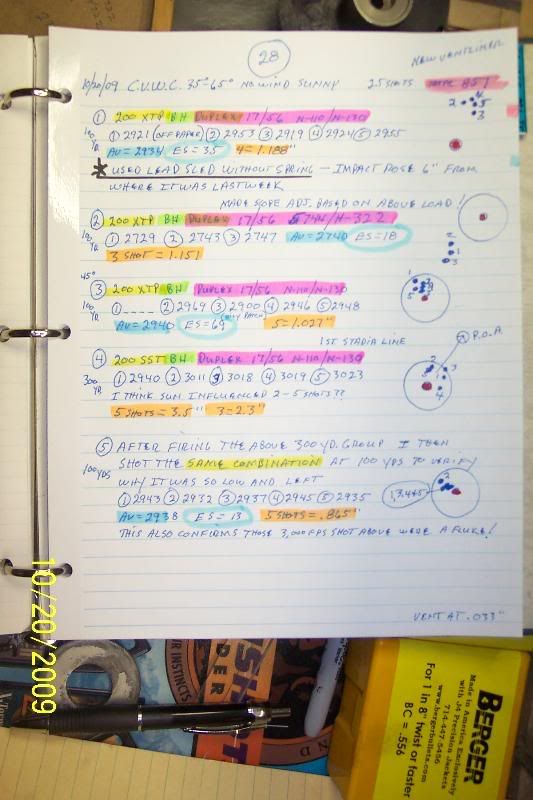 28
NEW VENTLINER
10/20/09 C.V.W.C. 35°-65° NO WIND SUNNY 25 SHOTS TOTAL 851
① 200 XTP BH DUPLEX 17/56 N-110/N-130
100 YR ① 2921 (OFF PAPER) ② 2953 ③ 2919 ④ 2924 ⑤ 2955
AV = 2934 ES = 35 4 = 1.188"
* USED LEAD SLED WITHOUT SPRING - IMPACT ROSE 6" FROM
WHERE IT WAS LAST WEEK
MADE SCOPE ADJ. BASED ON ABOVE LOAD!
② 200 XTP BH DUPLEX 17/56 5744/H-322
100 YR ① 2729 ② 2743 ③ 2747 AV = 2740 ES = 18
3 SHOT = 1.151
45°
③ 200 XTP BH DUPLEX 17/56 N-110/N-130
100 YR ① ---- ② 2969 ③ 2900 ④ 2946 ⑤ 2948
AV = 2940 ES = 69 5 = 1.027"
1ST STADIA LINE
P.O.A.
④ 200 SST BH DUPLEX 17/56 N-110/N-130
300 YR ① 2940 ② 3011 ③ 3018 ④ 3019 ⑤ 3023
I THINK SUN INFLUENCED 2-5 SHOTS??
5 SHOTS = 3.5" 3 = 2.3"
⑤ AFTER FIRING THE ABOVE 300 YD. GROUP I THEN
100 YDS SHOT THE SAME COMBINATION AT 100 YDS TO VERIFY
WHY IT WAS SO LOW AND LEFT
① 2943 ② 2932 ③ 2937 ④ 2945 ⑤ 2935
1,3,4&5
AV = 2938 ES = 13 5 SHOTS = .865"
THIS ALSO CONFIRMS THOSE 3,000 FPS SHOT ABOVE WERE A FLUKE!
VENT AT .033"
10/20/2009
UR INSTINCTS
BERGER
Made in America Exclusively
with J4 Precision Jackets
714-447-5456
www.bergerbullets.com
For 1 in 8" twist or faster
BC = .556